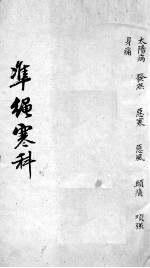 太陽病 發热 惡寒 惡風 頭痛 項强
身痛
準繩寒科